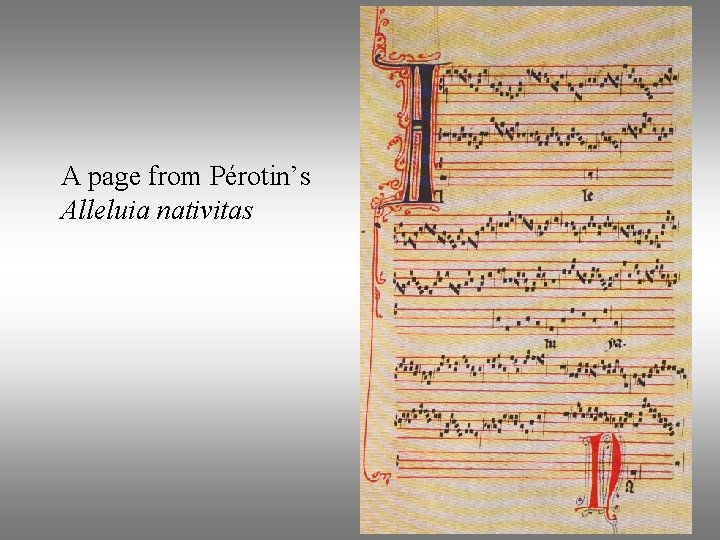 A page from Pérotin’s
Alleluia nativitas
A le
lu ya.
N a